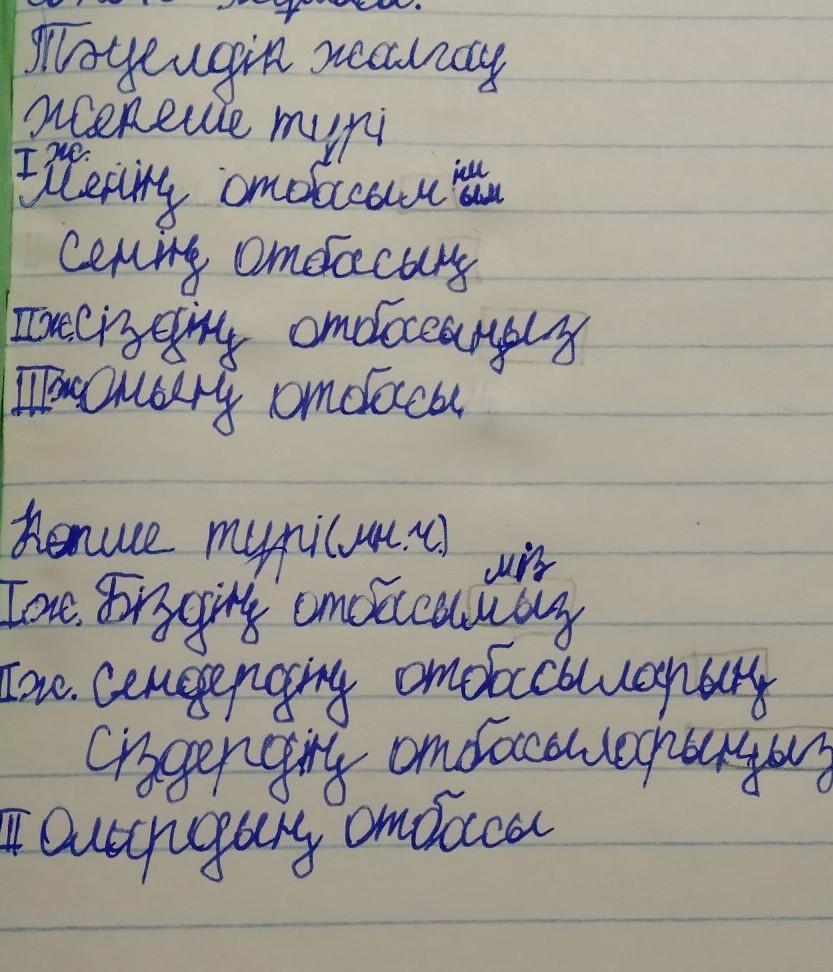 Тәуелдік жалғау
Жекеше түрі
I ж. Менің отбасым ім ым
Сенің отбасың
II ж. Сіздің отбасыңыз
III ж. Оның отбасы
Көпше түрі (мн.ч.)
I ж. Біздің отбасымыз міз
II ж. Сендердің отбасыларың
Сіздердің отбасыларыңыз
III Олардың отбасы